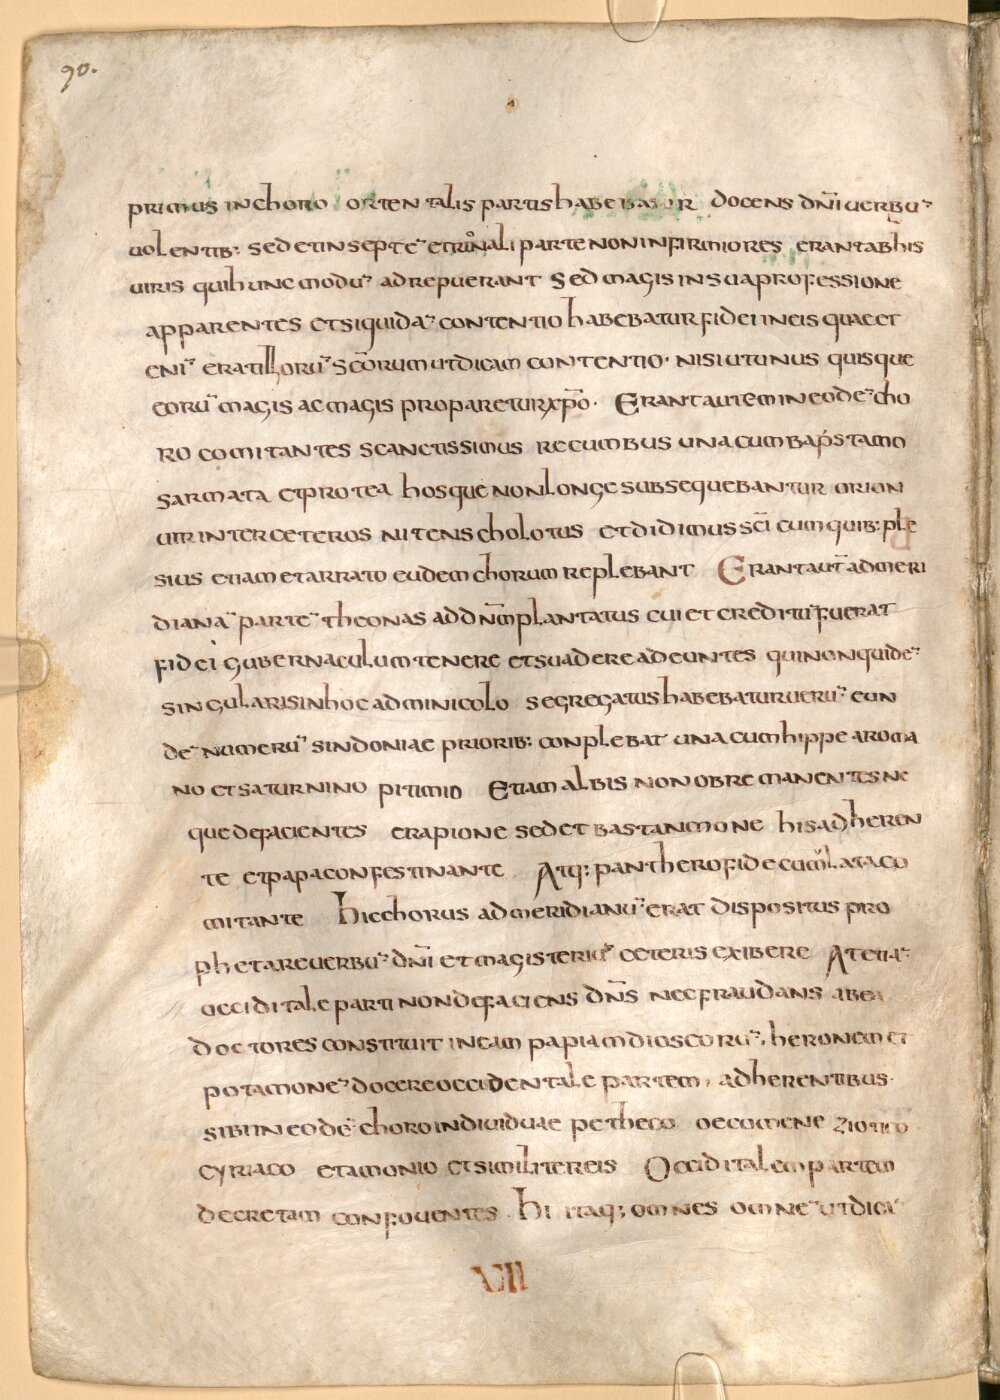 90.
primus inchoro orientalis partis habebatur docens dn̄i uerbū
uolentib: sed et in septē etrionali parte non infirmiores erant ab his
uiris qui hunc modū adrepuerant Sed magis in sua professione
apparentes et siquidā contentio habebatur fidei in eis quae et
enī erat illorū sc̄orum ut dicam contentio· nisi ut unus quisque
eorū magis ac magis propareturxp̄o· Erant autem in eodē cho
ro comitantes scanctissimus recumbus una cum bapstamo
sarmata et protea hosque non longe subsequebantur orion
uir inter ceteros nitens cholotus et didimus sc̄i cum quib: ple
sius etiam et arrato eudem chorum replebant Erant aut̄ ad meri
dianā partē theonas ad dn̄m plantatus cui et creditū fuerat
fidei gubernaculum tenere et suadere adeuntes qui non quidē
singularis in hoc adminicolo segregatus habebatur uerū eun
dē numerū sindoniae priorib: conplebat una cum hippe aroma
no et saturnino pitimio Etiam albis non obremanentes ne
que defacientes erapione sed et bastanmone his adheren
te et papa confestinante Atq: panthero fide cumulata co
mitante hic chorus ad meridianū erat dispositus pro
phetare uerbū dn̄i et magisteriū ceteris exibere At etiā
occiditale parti non defaciens dn̄s nec fraudans abea
doctores constituit in eam papiam dioscorū, heronem et
potamonē docere occidentale partem, adherentibus·
sibi in eodē choro indiuiduae petheco oecomene ziotico
cyriaco et amonio et similiter eis Occiditalem partem
decretam confouentes· hi itaq; omnes omnē ut dicā
VII